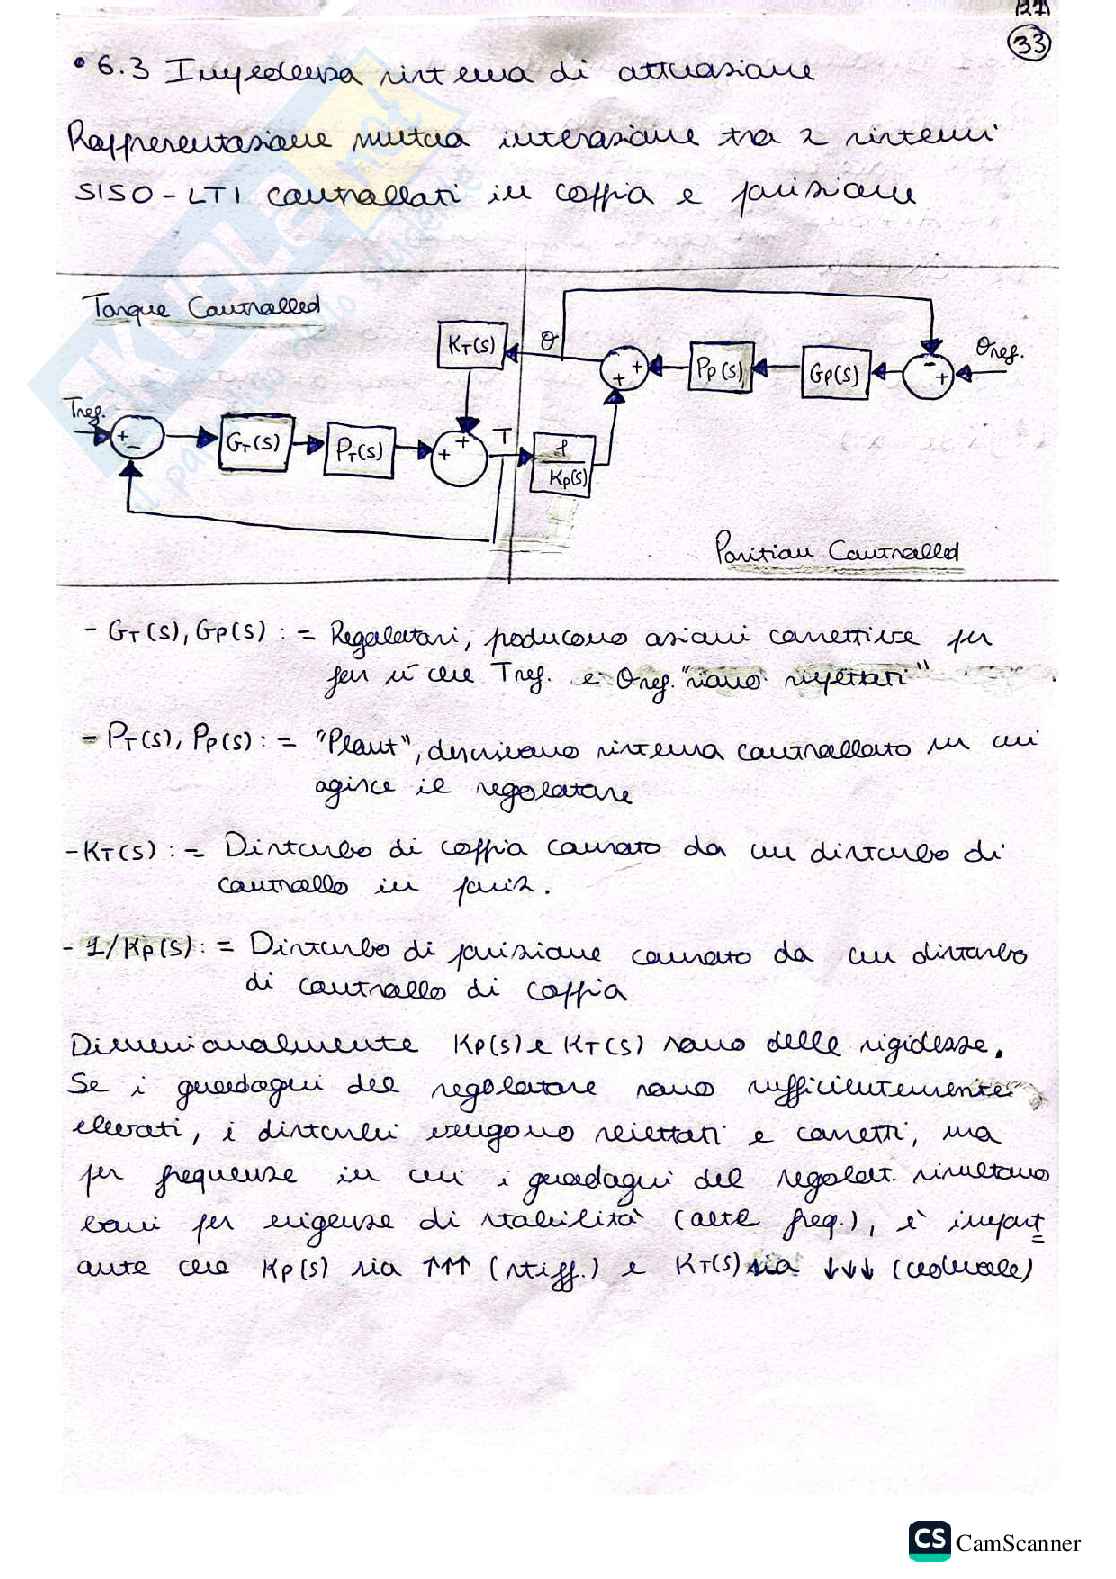 33
• 6.3 Impedenza sistema di attuazione
Rappresentazione mutua interazione tra 2 sistemi
SISO-LTI controllati in coppia e posizione
Torque Controlled
KT(s)
θ
PP(s)
GP(s)
-
+
θref.
+
+
Tref.
+
-
GT(s)
PT(s)
+
+
T
1
KP(s)
Position Controlled
- GT(s), GP(s) : = Regolatori, producono azioni correttive per
far sì che Tref. e θref. "siano rispettati"
- PT(s), PP(s) : = "Plant", descrivono sistema controllato su cui
agisce il regolatore
- KT(s) : = Disturbo di coppia causato da un disturbo di
controllo in posiz.
- 1/KP(s) : = Disturbo di posizione causato da un disturbo
di controllo di coppia
Dimensionalmente KP(s) e KT(s) sono delle rigidezze.
Se i guadagni del regolatore sono sufficientemente
elevati, i disturbi vengono reiettati e corretti, ma
per frequenze in cui i guadagni del regolat. risultano
bassi per esigenze di stabilità (alte freq.), è import
ante che KP(s) sia ↑↑↑ (stiff.) e KT(s) sia ↓↓↓ (cedevole)
CS CamScanner